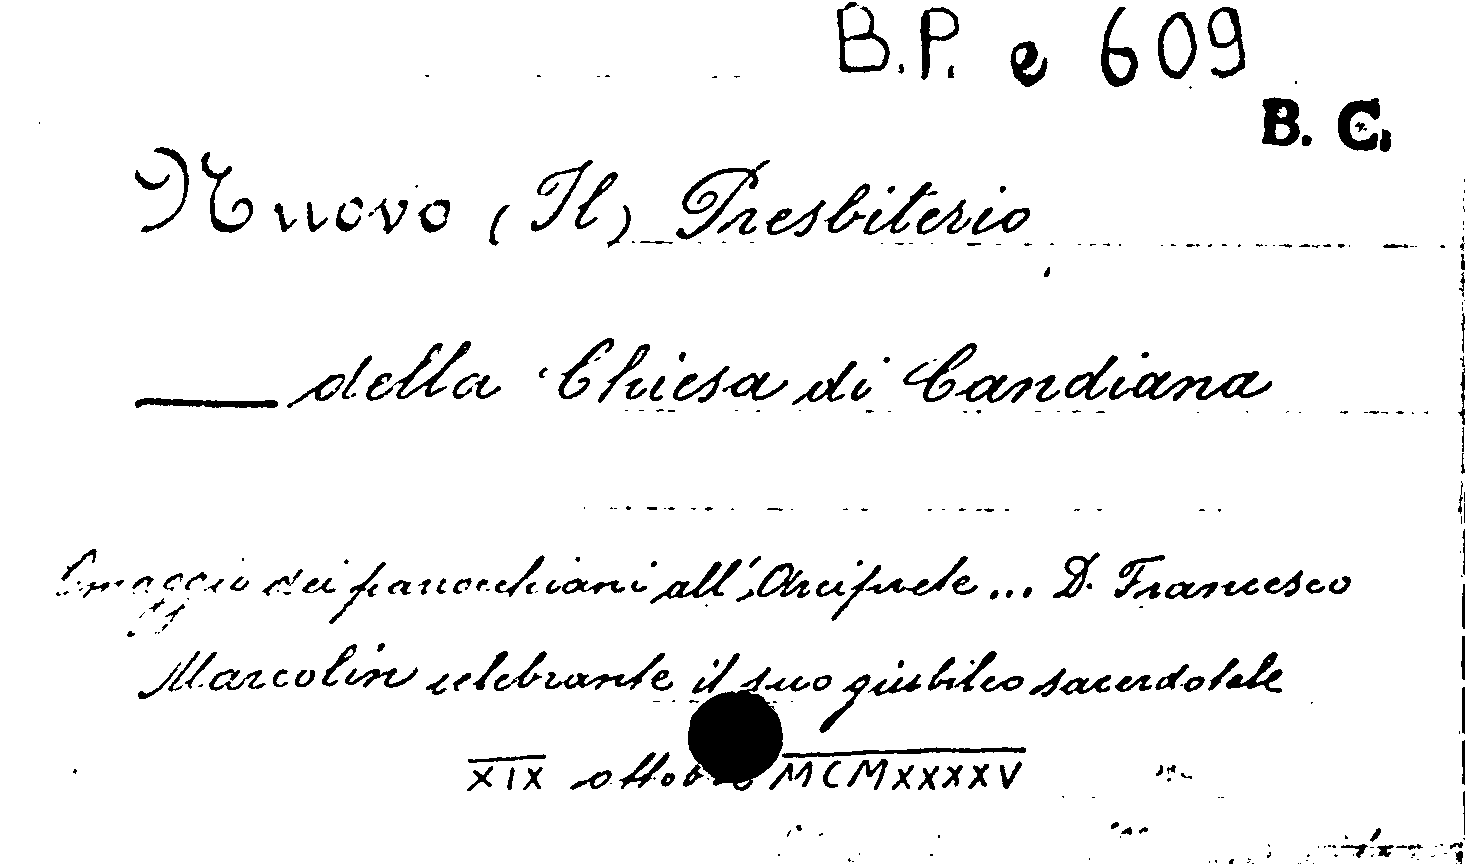 B.P. e 609
B. C.
Nuovo (Il) Presbiterio
della Chiesa di Candiana
Omaggio dei parrocchiani all'Arciprete ... D. Francesco
Marcolin celebrante il suo giubileo sacerdotale
XIX ottobre MCMXXXXV